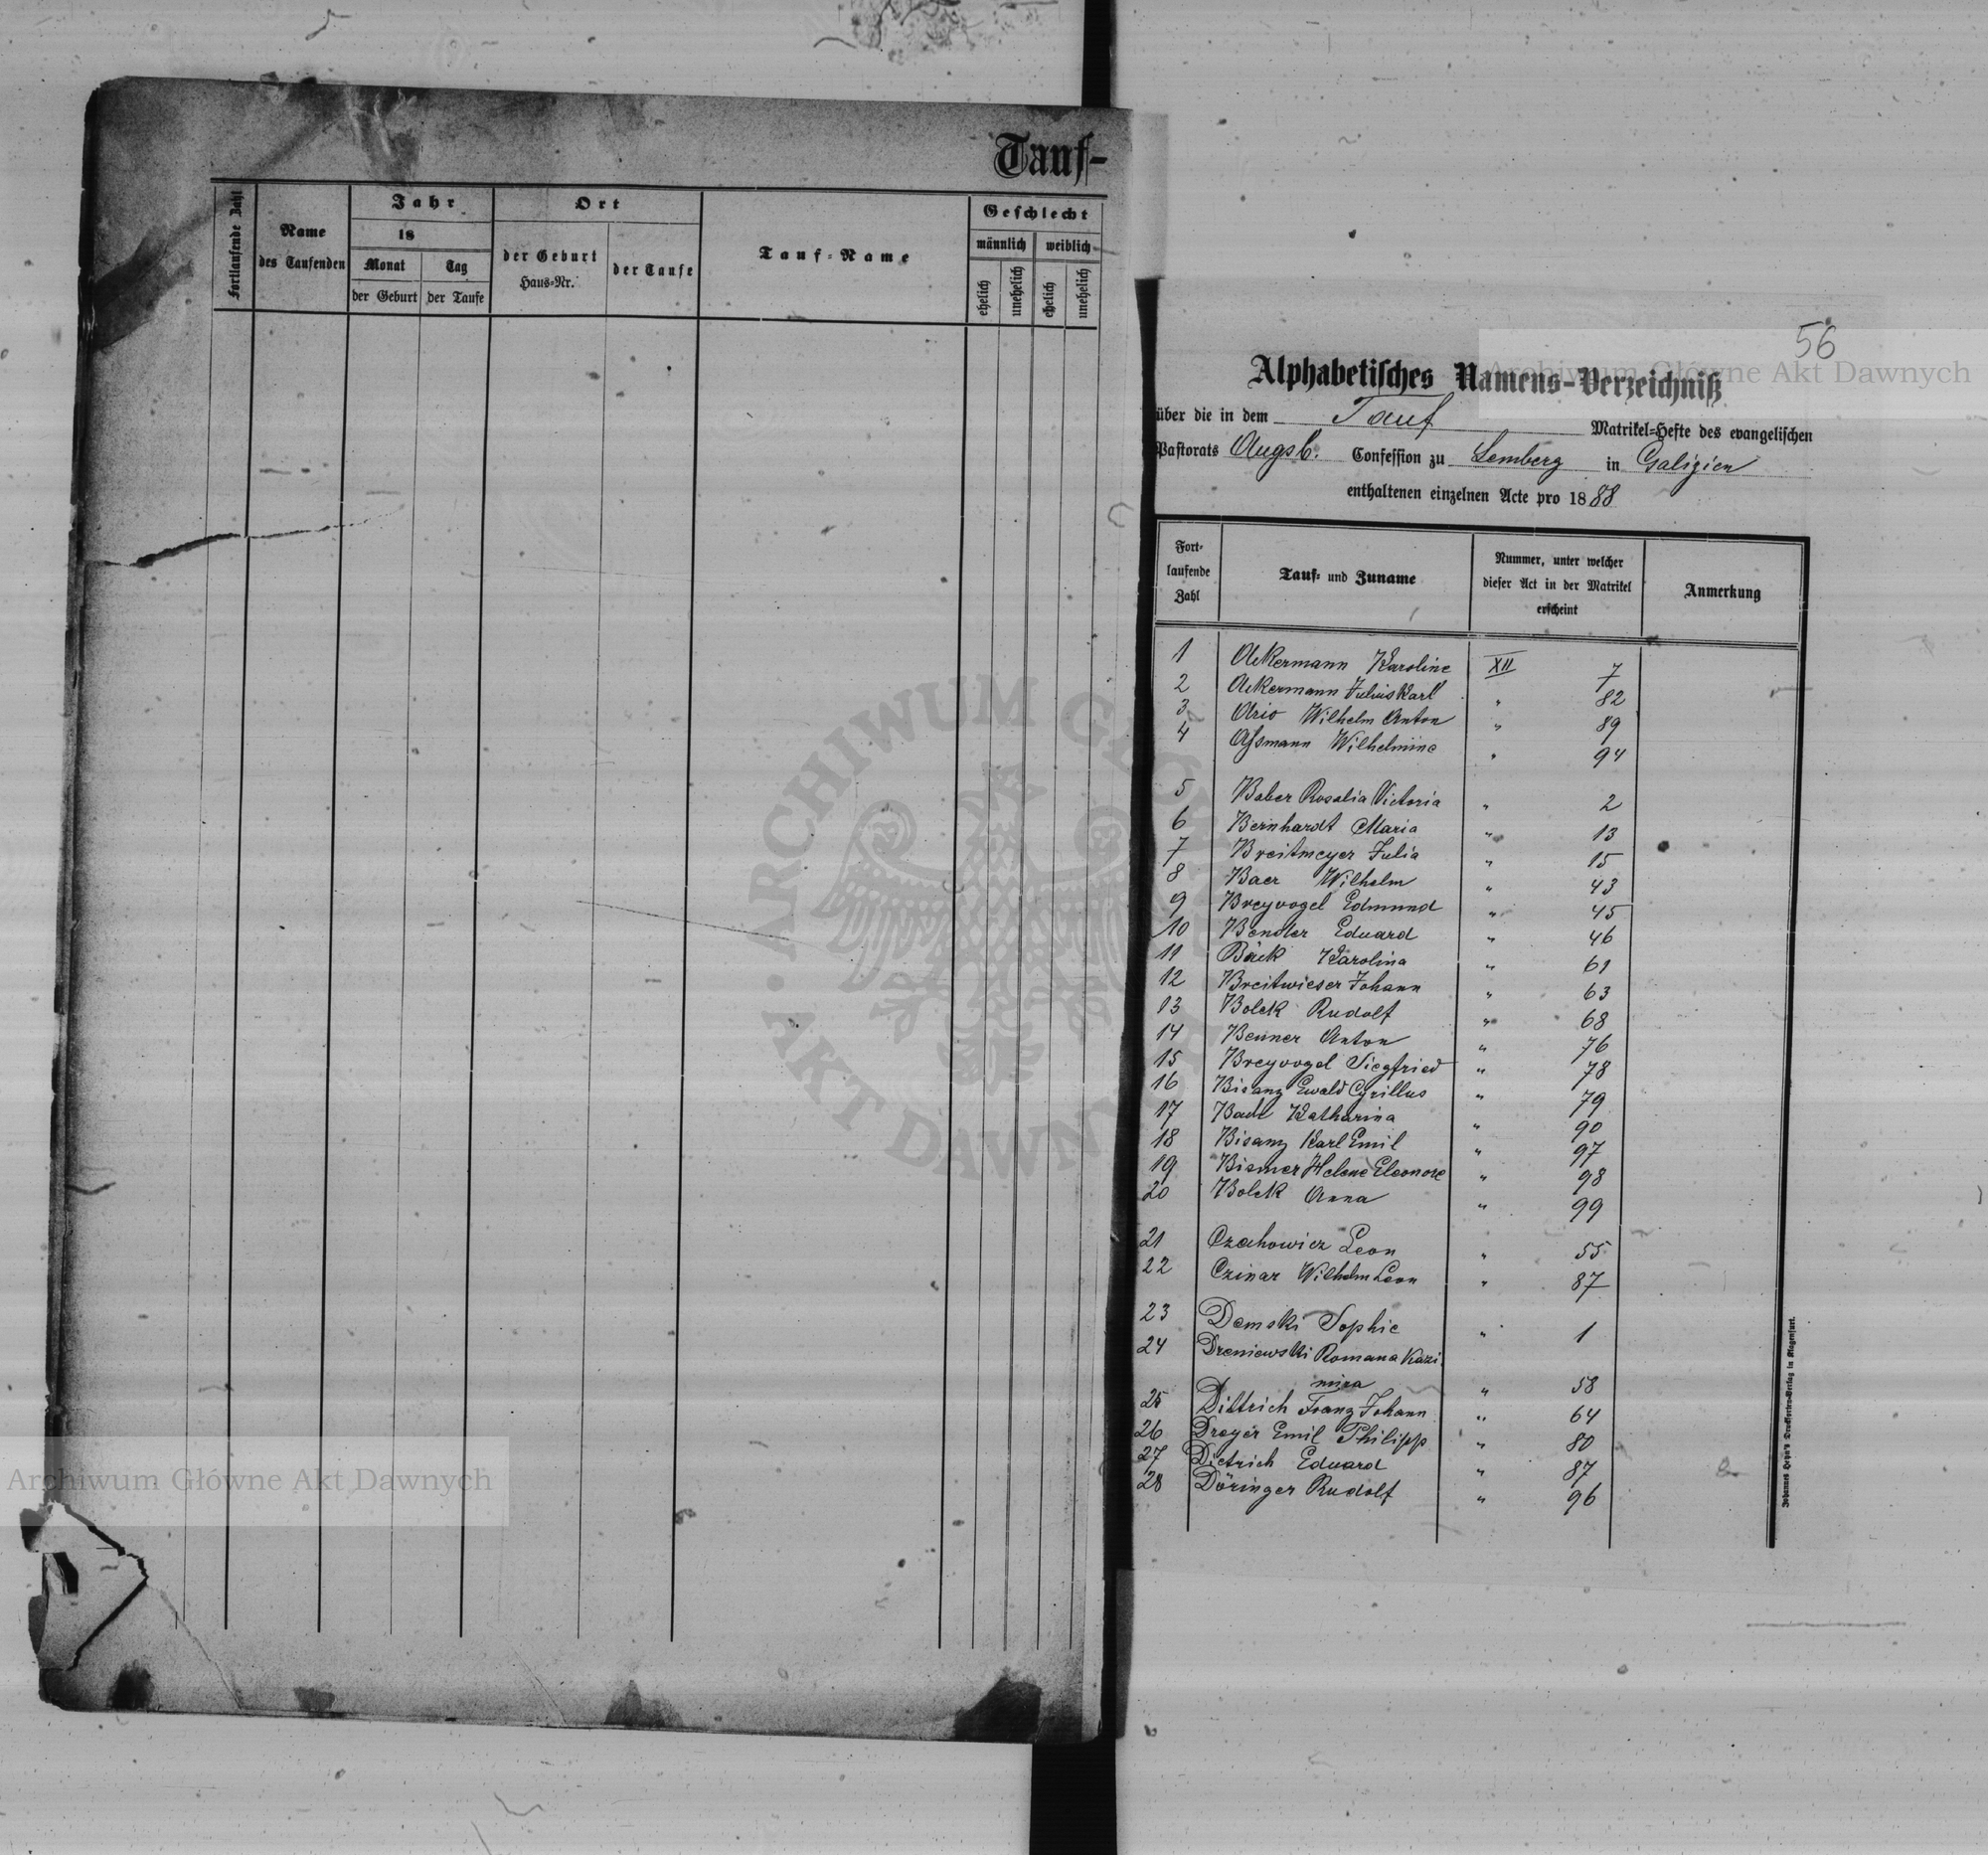 Tauf-
Fortlaufende Zahl
Name
des Taufenden
Jahr
18
Monat
Tag
der Geburt
der Taufe
Ort
der Geburt
Haus-Nr.
der Taufe
Tauf-Name
Geschlecht
männlich
weiblich
ehelich
unehelich
ehelich
unehelich
56
Alphabetisches Namens-Verzeichniß
über die in dem Tauf Matrikel-Hefte des evangelischen
Pastorats Augsb. Confession zu Lemberg in Galizien
enthaltenen einzelnen Acte pro 1888
Fort-
laufende
Zahl
Tauf- und Zuname
Nummer, unter welcher
dieser Act in der Matrikel
erscheint
Anmerkung
1 Ackermann Karoline XII 7
2 Ackermann Julius Karl " 82
3 Ario Wilhelm Anton " 89
4 Aſsmann Wilhelmine " 94
5 Baber Rosalia Victoria " 2
6 Bernhardt Maria " 13
7 Breitmeyer Julia " 15
8 Baer Wilhelm " 43
9 Breyvogel Edmund " 45
10 Bendler Eduard " 46
11 Bäck Karolina " 61
12 Breitwieser Johann " 63
13 Bolek Rudolf " 68
14 Anton " 76
15 Breyvogel Siegfried " 78
16 Bisanz Ewald Cyrillus " 79
17 Katharina " 90
18 Bisanz Karl Emil " 97
19 Helene Eleonore " 98
20 Bolek Anna " 99
21 Czachowicz Leon " 55
22 Czinar Wilhelm Leon " 87
23 Demski Sophie " 1
24 Dreniewski Romana Kazi
mira " 58
25 Dittrich Franz Johann " 64
26 Dreyer Emil Philipp " 80
27 Dietrich Eduard " 87
28 Döringer Rudolf " 96
Johannes Heyn's Drucksorten-Verlag in Klagenfurt.
Archiwum Główne Akt Dawnych
Archiwum Główne Akt Dawnych
ARCHIWUM GŁÓWNE
AKT DAWNYCH